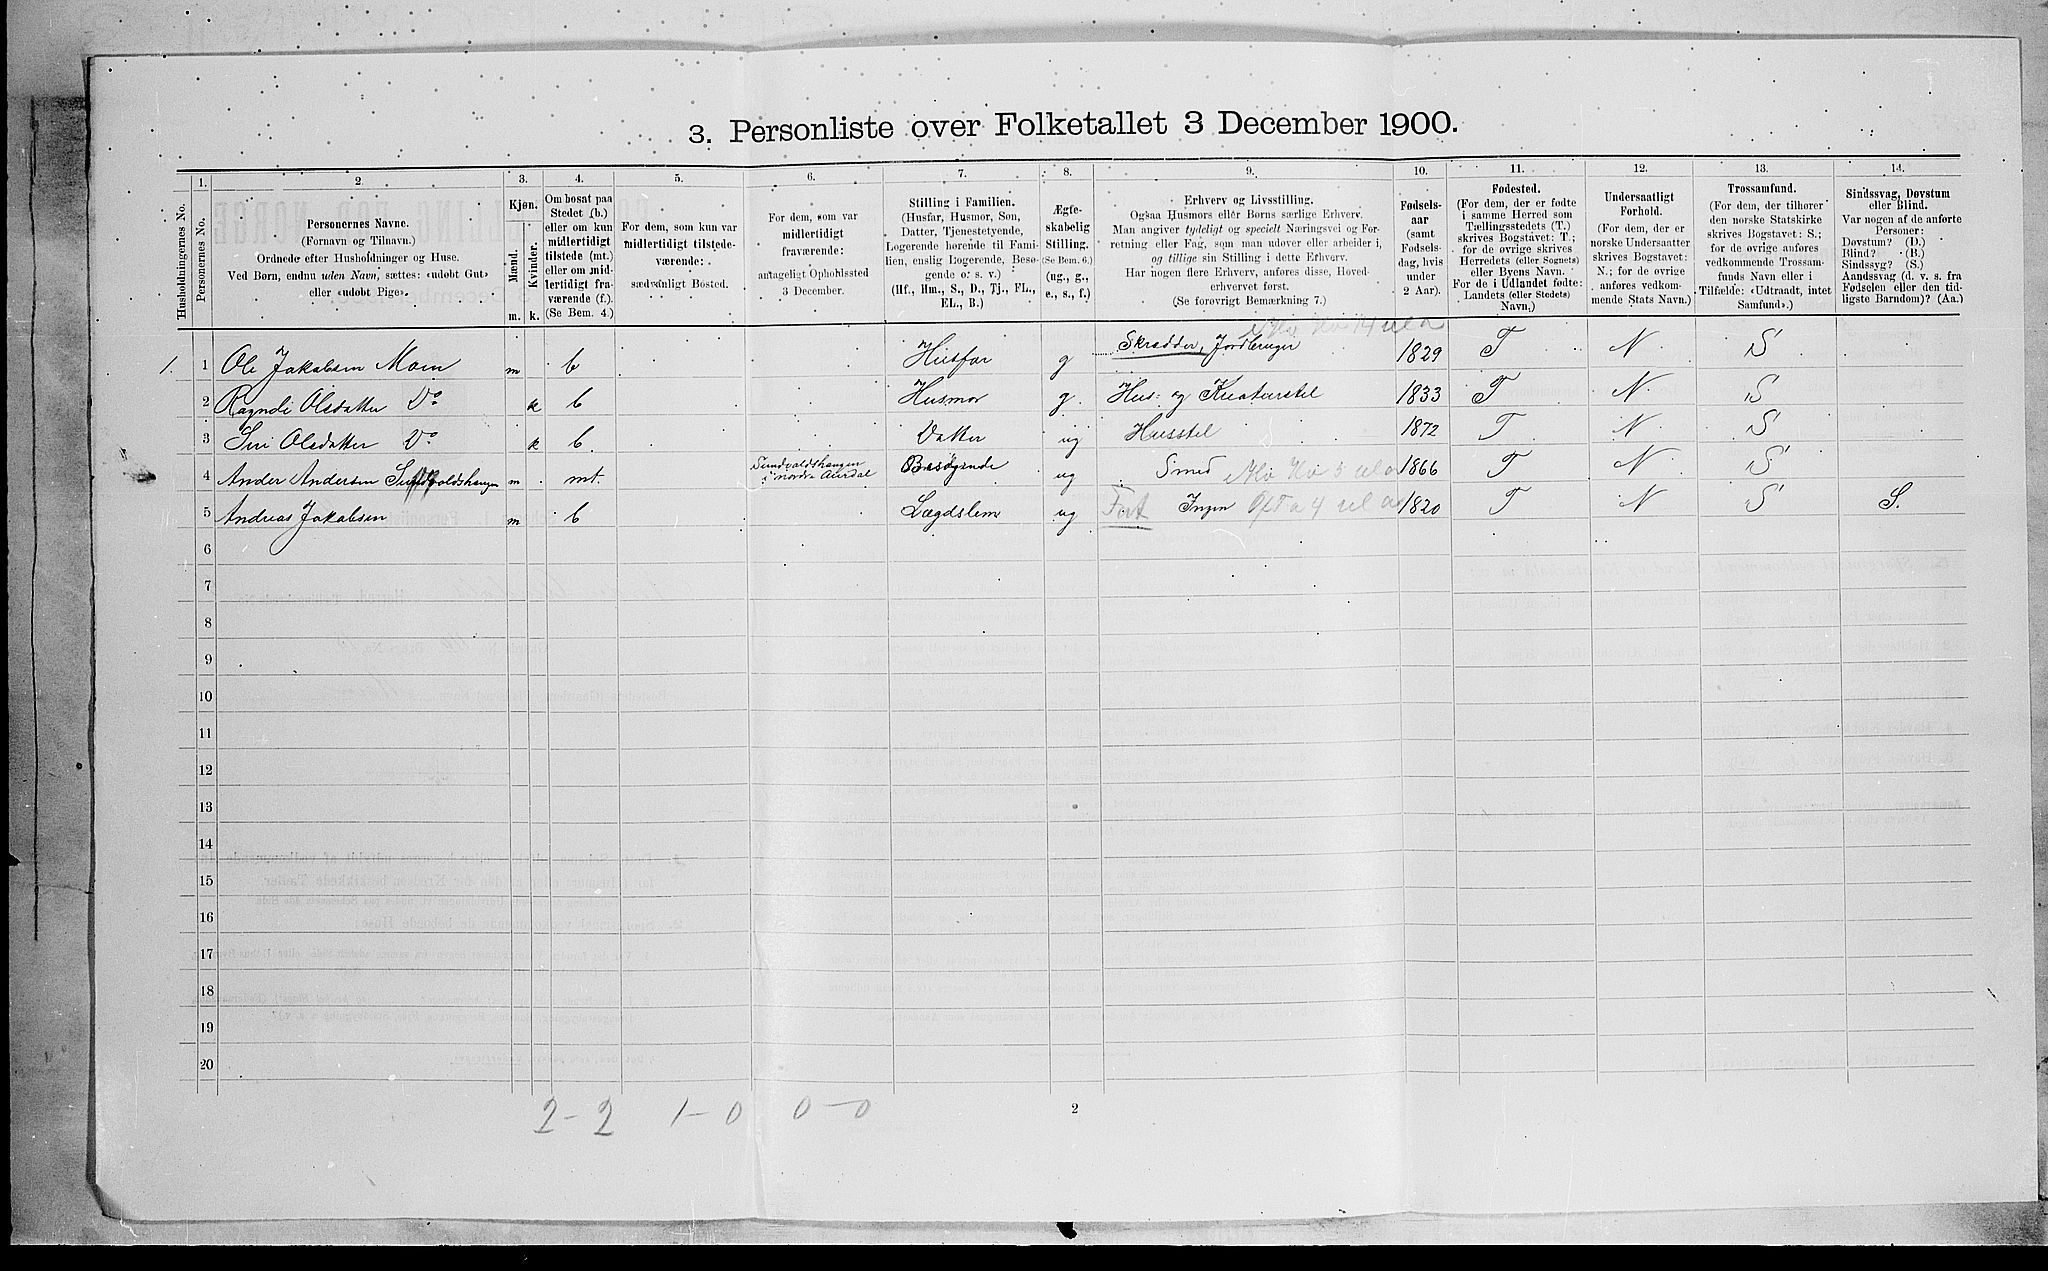 3. Personliste over Folketallet 3 December 1900.
Husholdningernes No.
1.
Personernes No.
2.
Personernes Navne.
(Fornavn og Tilnavn.)
Ordnede efter Husholdninger og Huse.
Ved Børn, endnu uden Navn, sættes: «udøbt Gut»
eller «udøbt Pige».
3.
Kjøn.
Mænd.
Kvinder.
m. k.
4.
Om bosat paa
Stedet (b.)
eller om kun
midlertidigt
tilstede (mt.)
eller om mid-
lertidigt fra-
værende (f.).
(Se Bem. 4.)
5.
For dem, som kun var
midlertidigt tilstede-
værende:
sædvanligt Bosted.
6.
For dem, som var
midlertidigt
fraværende:
antageligt Opholdssted
3 December.
7.
Stilling i Familien.
(Husfar, Husmor, Søn,
Datter, Tjenestetyende,
Logerende hørende til Fami-
lien, enslig Logerende, Besø-
gende o. s. v.)
(Hf., Hm., S., D., Tj., FL.,
EL., B.)
8.
Ægte-
skabelig
Stilling.
(Se Bem. 6.)
(ug., g.,
e., s., f.)
9.
Erhverv og Livsstilling.
Ogsaa Husmors eller Børns særlige Erhverv.
Man angiver tydeligt og specielt Næringsvei og For-
retning eller Fag, som man udøver eller arbeider i,
og tillige sin Stilling i dette Erhverv.
Har nogen flere Erhverv, anføres disse, Hoved-
erhvervet først.
(Se forøvrigt Bemærkning 7.)
10.
Fødsels-
aar
(samt
Fødsels-
dag, hvis
under
2 Aar).
11.
Fødested.
(For dem, der er fødte
i samme Herred som
Tællingsstedets (T.)
skrives Bogstavet: T.;
for de øvrige skrives
Herredets (eller Sognets)
eller Byens Navn.
For de i Udlandet fødte:
Landets (eller Stedets)
Navn.)
12.
Undersaatligt
Forhold.
(For dem, der er
norske Undersaatter
skrives Bogstavet:
N.; for de øvrige
anføres vedkom-
mende Stats Navn.)
13.
Trossamfund.
(For dem, der tilhører
den norske Statskirke
skrives Bogstavet: S.;
for de øvrige anføres
vedkommende Trossam-
funds Navn eller i
Tilfælde: «Udtraadt, intet
Samfund».)
14.
Sindssvag, Døvstum
eller Blind.
Var nogen af de anførte
Personer:
Døvstum? (D.)
Blind? (B.)
Sindssyg? (S.)
Aandssvag (d. v. s. fra
Fødselen eller den tid-
ligste Barndom)? (Aa.)
1. 1 Ole Jakobsen Moen m b Husfar g Skrædder, Jordbruger 1829 T N S
2 Ragndi Olsdatter Do k b Husmor g. Hus- og Kreaturstel 1833 T N S
3 Siri Olsdatter Do k b Datter ug Husstel 1872 T N S
4 Ander Andersen m mt. Sundvoldshaugen i nordre Aurdal Besøgende ug Smed 1866 T N S
5 Andreas Jakobsen m b Lægdslem ug Fort Ingen 1820 T N S S.
6
7
8
9
10
11
12
13
14
15
16
17
18
19
20
2-2 1-0 0-0
2